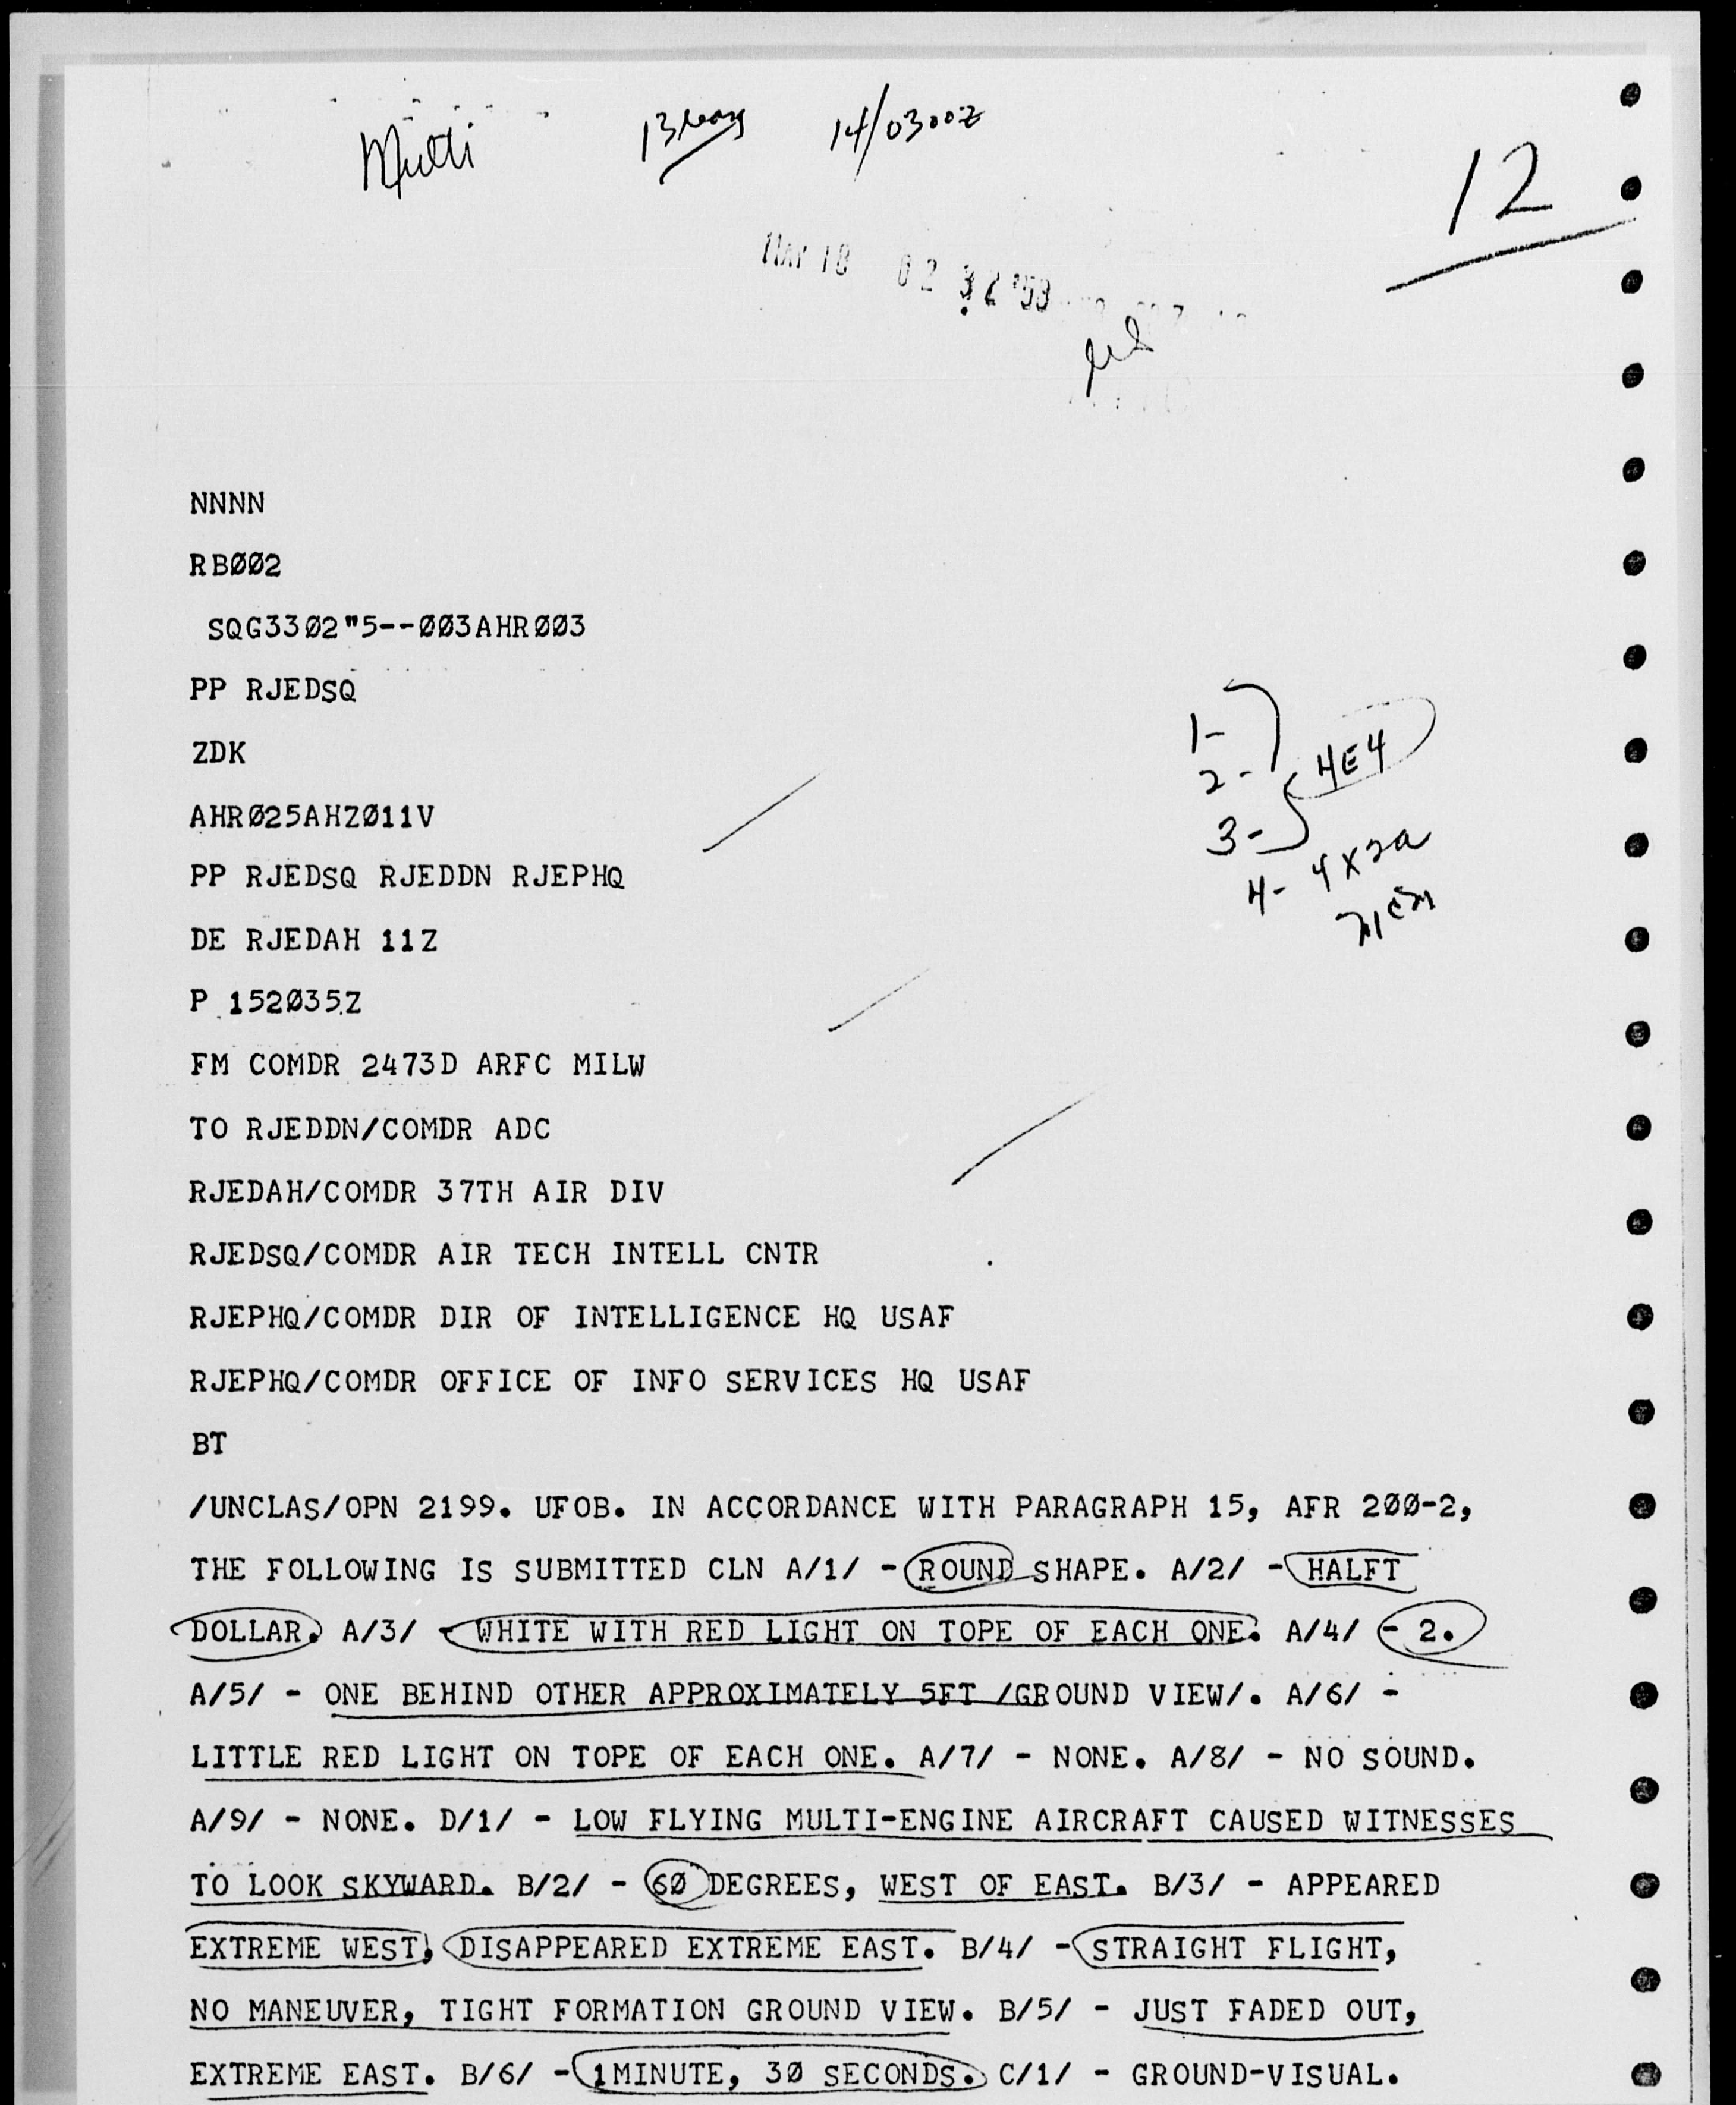 Multi 13 May 14/0300Z
12
MAY 18 02 32 '58
NNNN
RBØØ2
SQG33Ø2"5--ØØ3AHRØØ3
PP RJEDSQ
ZDK
AHRØ25AHZØ11V
PP RJEDSQ RJEDDN RJEPHQ
DE RJEDAH 11Z
P 152Ø35Z
1-
2-
3-
4E4
4-
FM COMDR 2473D ARFC MILW
TO RJEDDN/COMDR ADC
RJEDAH/COMDR 37TH AIR DIV
RJEDSQ/COMDR AIR TECH INTELL CNTR
RJEPHQ/COMDR DIR OF INTELLIGENCE HQ USAF
RJEPHQ/COMDR OFFICE OF INFO SERVICES HQ USAF
BT
/UNCLAS/OPN 2199. UFOB. IN ACCORDANCE WITH PARAGRAPH 15, AFR 2ØØ-2,
THE FOLLOWING IS SUBMITTED CLN A/1/ - ROUND SHAPE. A/2/ - HALFT
DOLLAR. A/3/ - WHITE WITH RED LIGHT ON TOPE OF EACH ONE. A/4/ - 2.
A/5/ - ONE BEHIND OTHER APPROXIMATELY 5FT /GROUND VIEW/. A/6/ -
LITTLE RED LIGHT ON TOPE OF EACH ONE. A/7/ - NONE. A/8/ - NO SOUND.
A/9/ - NONE. D/1/ - LOW FLYING MULTI-ENGINE AIRCRAFT CAUSED WITNESSES
TO LOOK SKYWARD. B/2/ - 6Ø DEGREES, WEST OF EAST. B/3/ - APPEARED
EXTREME WEST, DISAPPEARED EXTREME EAST. B/4/ - STRAIGHT FLIGHT,
NO MANEUVER, TIGHT FORMATION GROUND VIEW. B/5/ - JUST FADED OUT,
EXTREME EAST. B/6/ - 1MINUTE, 3Ø SECONDS. C/1/ - GROUND-VISUAL.